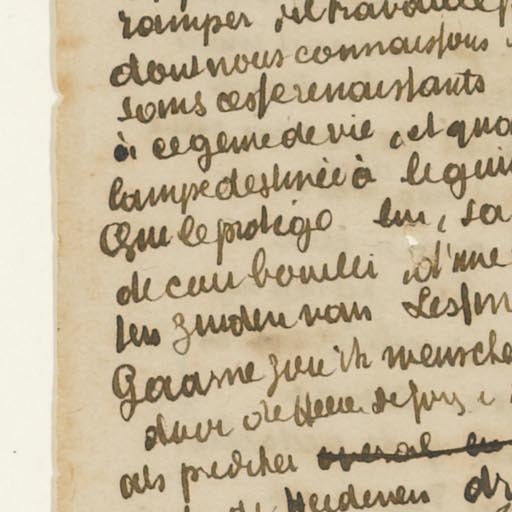 ramper, il travaille
dont nous connaissons
sans cesse renaissants
à ce genre de vie, et qua
lampe destinée à le gui
Que le protège lui, sa
de cuir bouilli, d'une
ten zuiden van Lessin
Gaarne zou ik mensche
door de
als prediker overal en
Heidenen